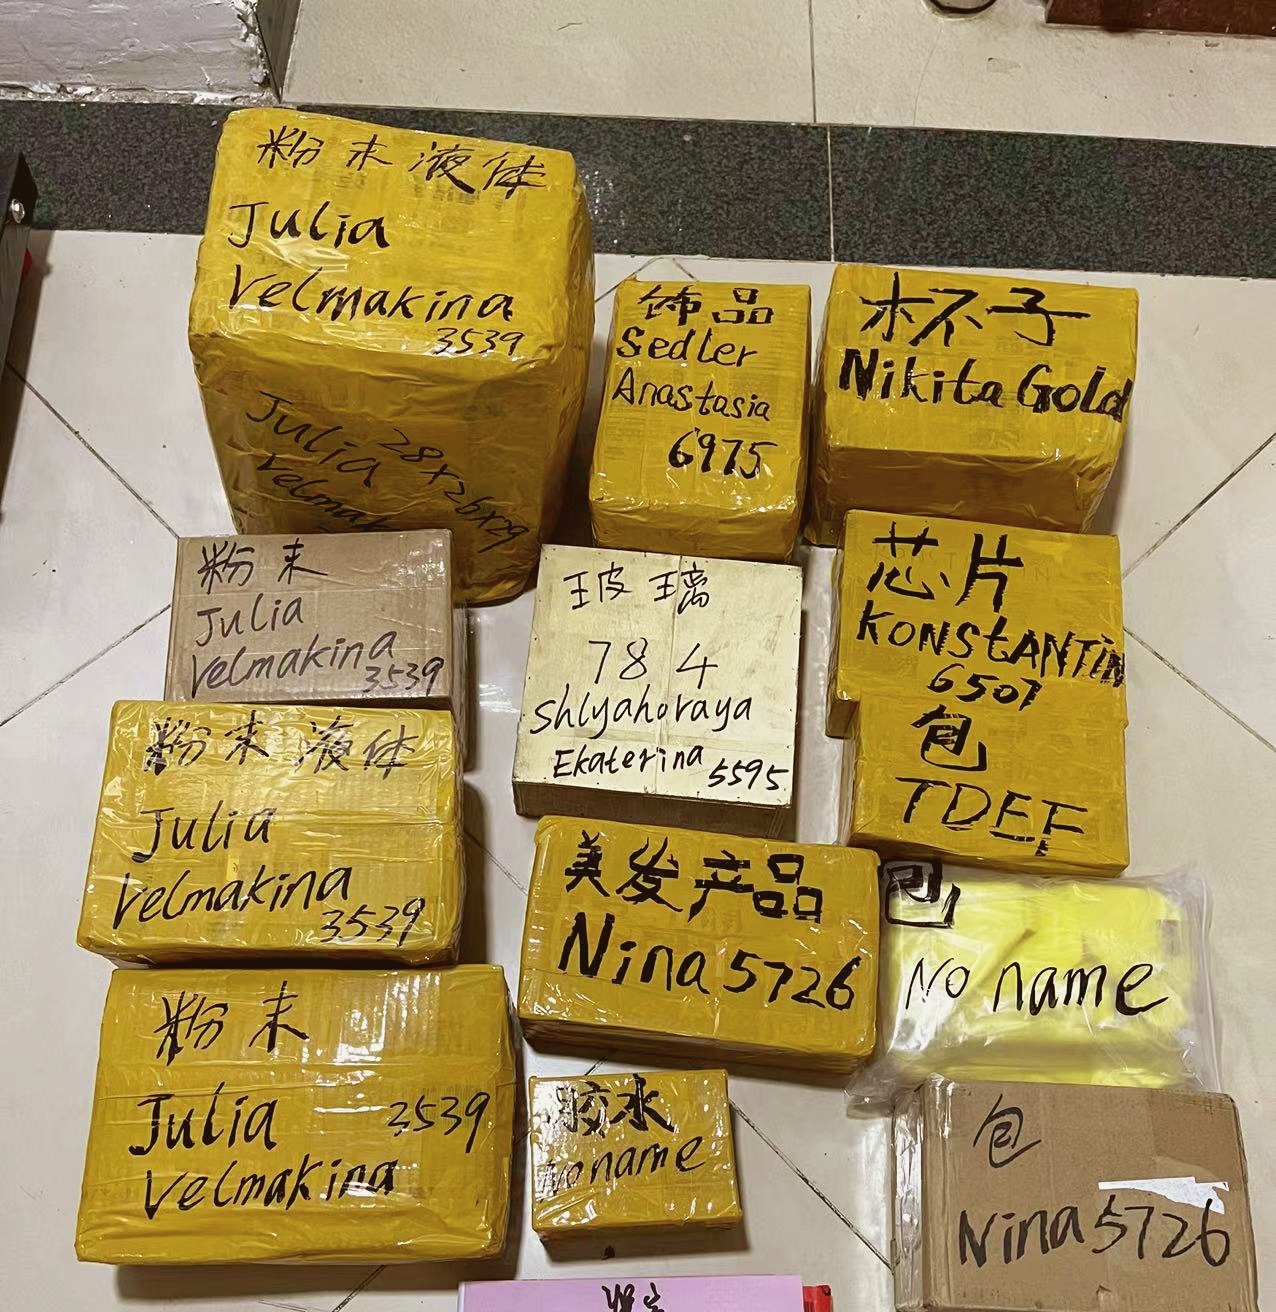 粉末液体
Julia
Velmakina
3539
Julia 28×26×29
Velmak
饰品
Sedler
Anastasia
6975
杯子
Nikita Gold
粉末
Julia
Velmakina
3539
玻璃
784
Shlyahoraya
Ekaterina 5595
芯片
KONStANTIN
6507
包
TDEF
粉末液体
Julia
Velmakina
3539
美发产品
Nina 5726
包
No name
粉末
Julia 3539
Velmakina
胶水
No name
包
Nina 5726